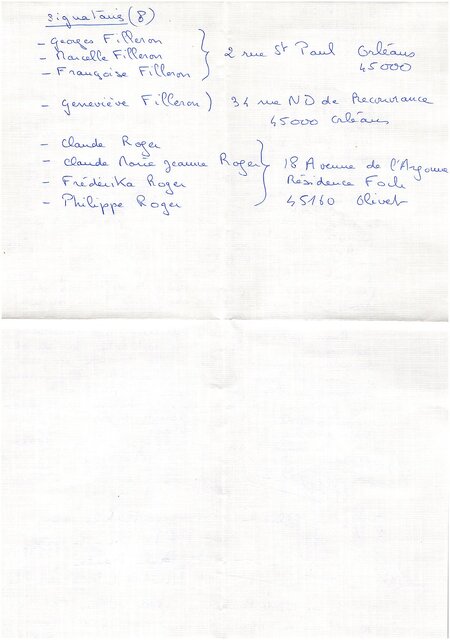 signataires (8)
- Georges Filleron
- Marcelle Filleron } 2 rue St Paul Orléans
- Françoise Filleron 45000
- Geneviève Filleron ) 34 rue ND de Recouvrance
45000 Orléans
- Claude Roger
- Claude Marie Jeanne Roger } 18 Avenue de l'Argonne
- Frédérika Roger Résidence Foch
- Philippe Roger 45160 Olivet